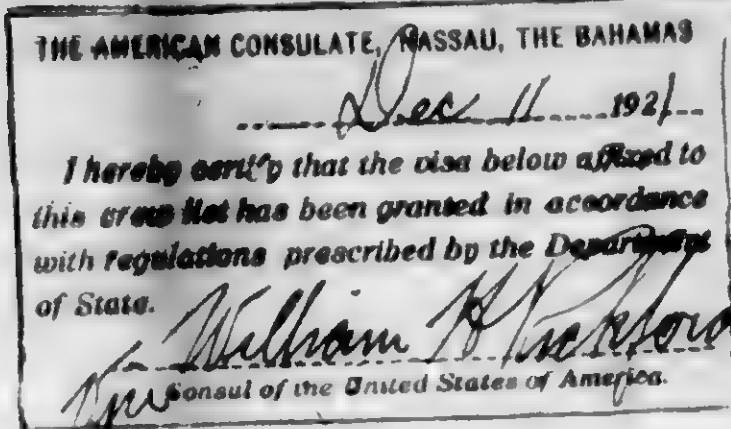 THE AMERICAN CONSULATE, NASSAU, THE BAHAMAS
Dec 11 1921
I hereby certify that the visa below affixed to
this crew list has been granted in accordance
with regulations prescribed by the Department
of State.
William H Pickford
Consul of the United States of America.